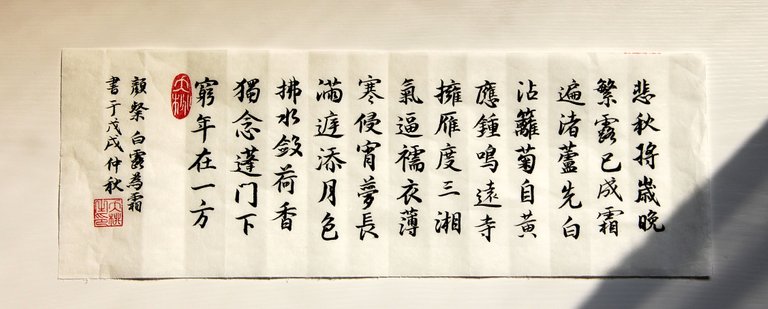 悲秋将歲晚
繁露已成霜
遍渚蘆先白
沾籬菊自黃
應鍾鳴遠寺
擁雁度三湘
氣逼襦衣薄
寒侵宵夢長
滿庭添月色
拂水斂荷香
獨念蓬門下
窮年在一方
顏粲白露為霜
書于戊戌仲秋